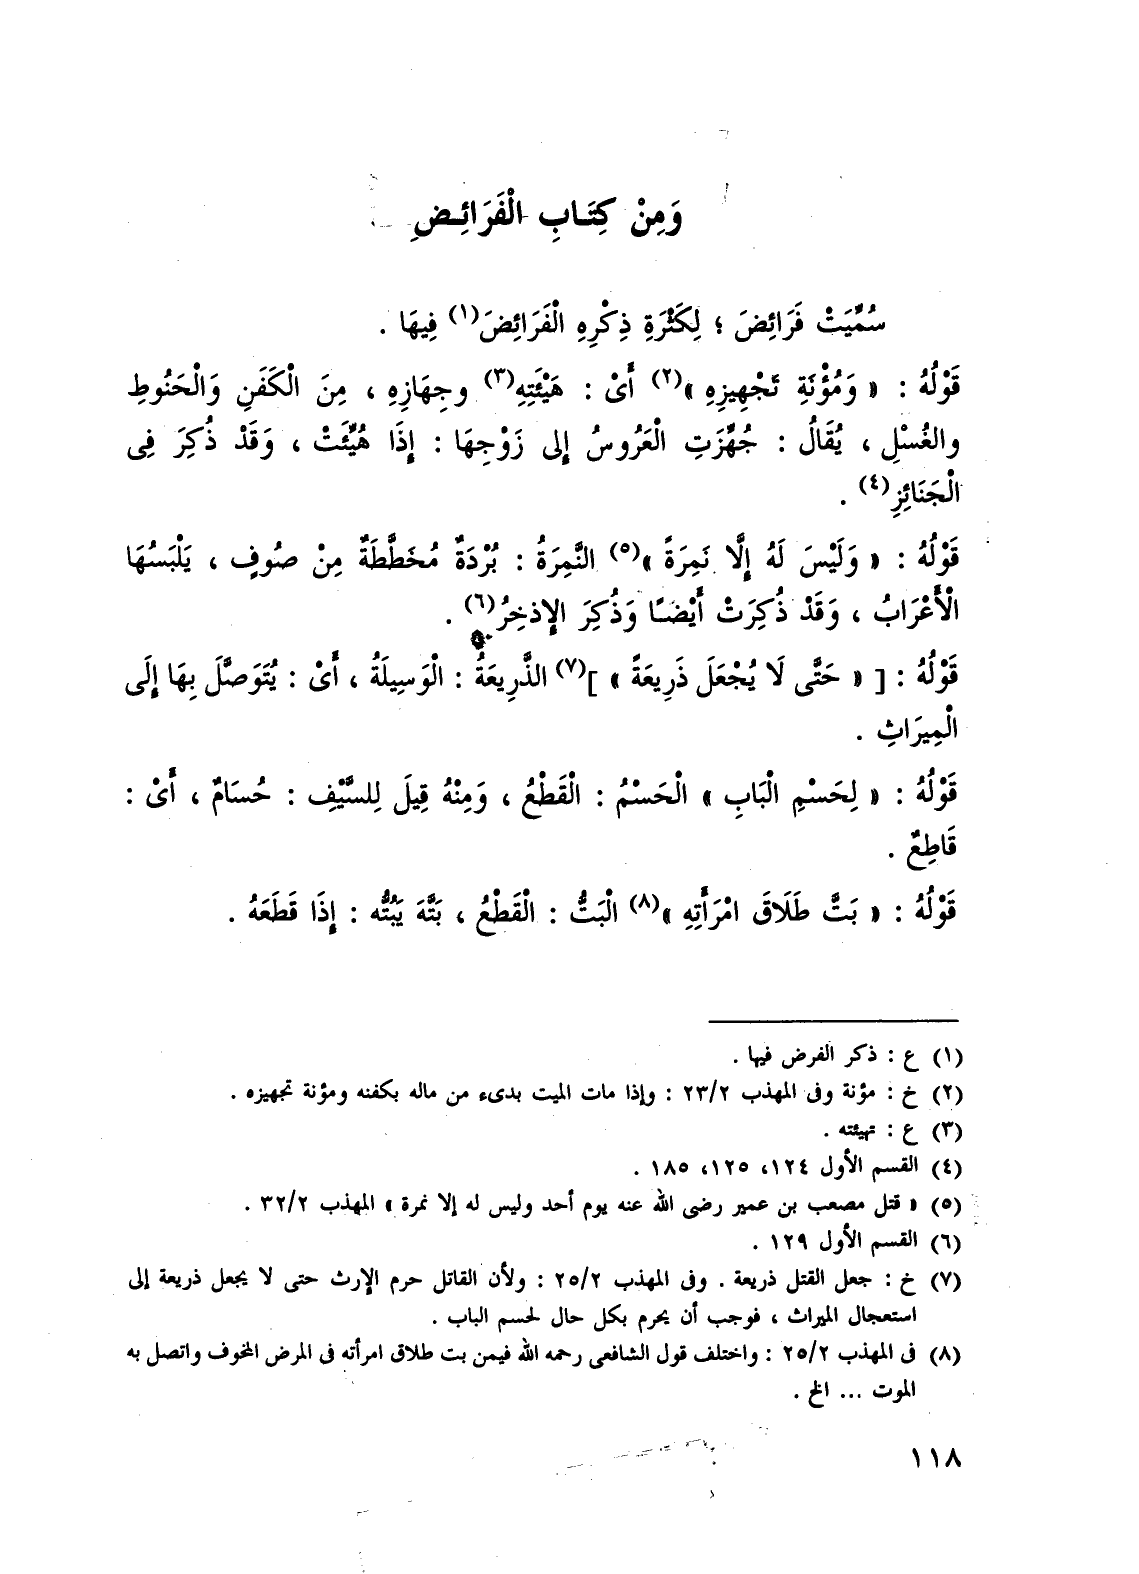 وَمِنْ كِتَابِ الْفَرَائِضِ
سُمِّيَتْ فَرَائِضَ ؛ لِكَثْرَةِ ذِكْرِهِ الْفَرَائِضَ(١) فِيهَا .
قَوْلُهُ : « وَمُؤْنَةِ تَجْهِيزِهِ »(٢) أَىْ : هَيْئَتِهِ(٣) وجِهَازِهِ ، مِنَ الْكَفَنِ وَالْحَنُوطِ
والغُسْلِ ، يُقَالُ : جُهِّزَتِ الْعَرُوسُ إِلى زَوْجِهَا : إِذَا هُيِّئَتْ ، وَقَدْ ذُكِرَ فِى
الْجَنَائِزِ(٤) .
قَوْلُهُ : « وَلَيْسَ لَهُ إِلَّا نَمِرَةً »(٥) النَّمِرَةُ : بُرْدَةٌ مُخَطَّطَةٌ مِنْ صُوفٍ ، يَلْبَسُهَا
الْأَعْرَابُ ، وَقَدْ ذُكِرَتْ أَيْضًا وَذُكِرَ الإِذخِرُ(٦) .
قَوْلُهُ : [ « حَتَّى لَا يُجْعَلَ ذَرِيعَةً » ](٧) الذَّرِيعَةُ : الْوَسِيلَةُ ، أَىْ : يُتَوَصَّلَ بِهَا إِلَى
الْمِيرَاثِ .
قَوْلُهُ : « لِحَسْمِ الْبَابِ » الْحَسْمُ : الْقَطْعُ ، وَمِنْهُ قِيلَ لِلسَّيْفِ : حُسَامٌ ، أَىْ :
قَاطِعٌ .
قَوْلُهُ : « بَتَّ طَلَاقَ امْرَأَتِهِ »(٨) الْبَتُّ : الْقَطْعُ ، بَتَّهَ يَبُتُّه : إِذَا قَطَعَهُ .
(١) ع : ذكر الفرض فيها .
(٢) خ : مؤنة وفى المهذب ٢٣/٢ : وإذا مات الميت بدىء من ماله بكفنه ومؤنة تجهيزه .
(٣) ع : تهيئته .
(٤) القسم الأول ١٢٤، ١٢٥، ١٨٥ .
(٥) « قتل مصعب بن عمير رضى الله عنه يوم أحد وليس له إلا نمرة » المهذب ٣٢/٢ .
(٦) القسم الأول ١٢٩ .
(٧) خ : جعل القتل ذريعة . وفى المهذب ٢٥/٢ : ولأن القاتل حرم الإرث حتى لا يجعل ذريعة إلى
استعجال الميراث ، فوجب أن يحرم بكل حال لحسم الباب .
(٨) فى المهذب ٢٥/٢ : واختلف قول الشافعى رحمه الله فيمن بت طلاق امرأته فى المرض المخوف واتصل به
الموت ... الخ .
١١٨